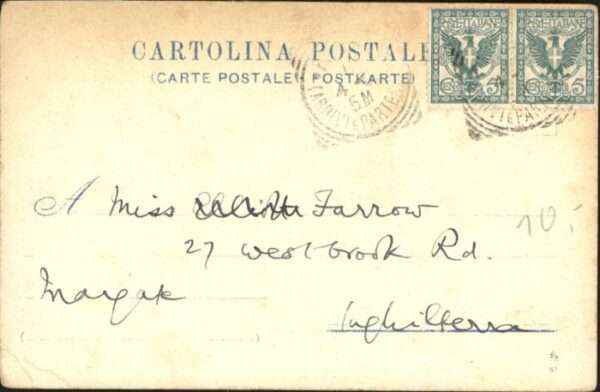 CARTOLINA POSTALE
(CARTE POSTALE POSTKARTE)
POSTE ITALIANE POSTE ITALIANE
CENT. 5 CENT. 5
5M
(ARRIVI E PARTENZE)
A Miss Farrow
27 Westbrook Rd.
Margate
Inghilterra
10.-